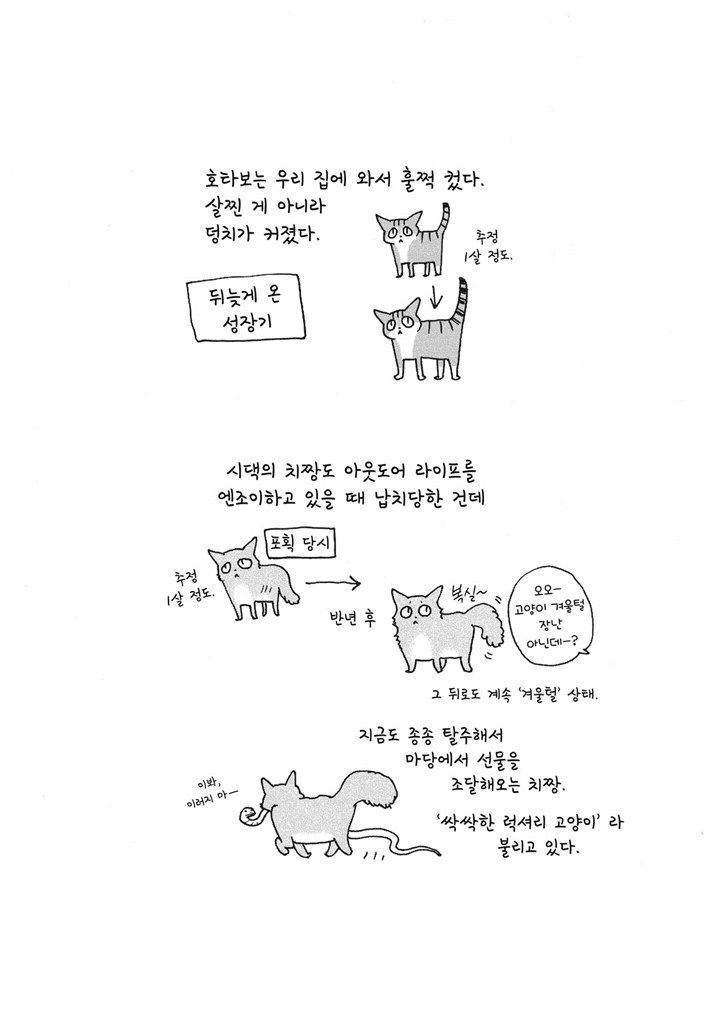 호타보는 우리 집에 와서 훌쩍 컸다.
살찐 게 아니라
덩치가 커졌다.
추정
1살 정도.
뒤늦게 온
성장기
시댁의 치짱도 아웃도어 라이프를
엔조이하고 있을 때 납치당한 건데
포획 당시
추정
1살 정도.
반년 후
복실~
오오-
고양이 겨울털
장난
아닌데-?
그 뒤로도 계속 '겨울털' 상태.
지금도 종종 탈주해서
마당에서 선물을
조달해오는 치짱.
이봐,
이러지 마-
'싹싹한 럭셔리 고양이' 라
불리고 있다.